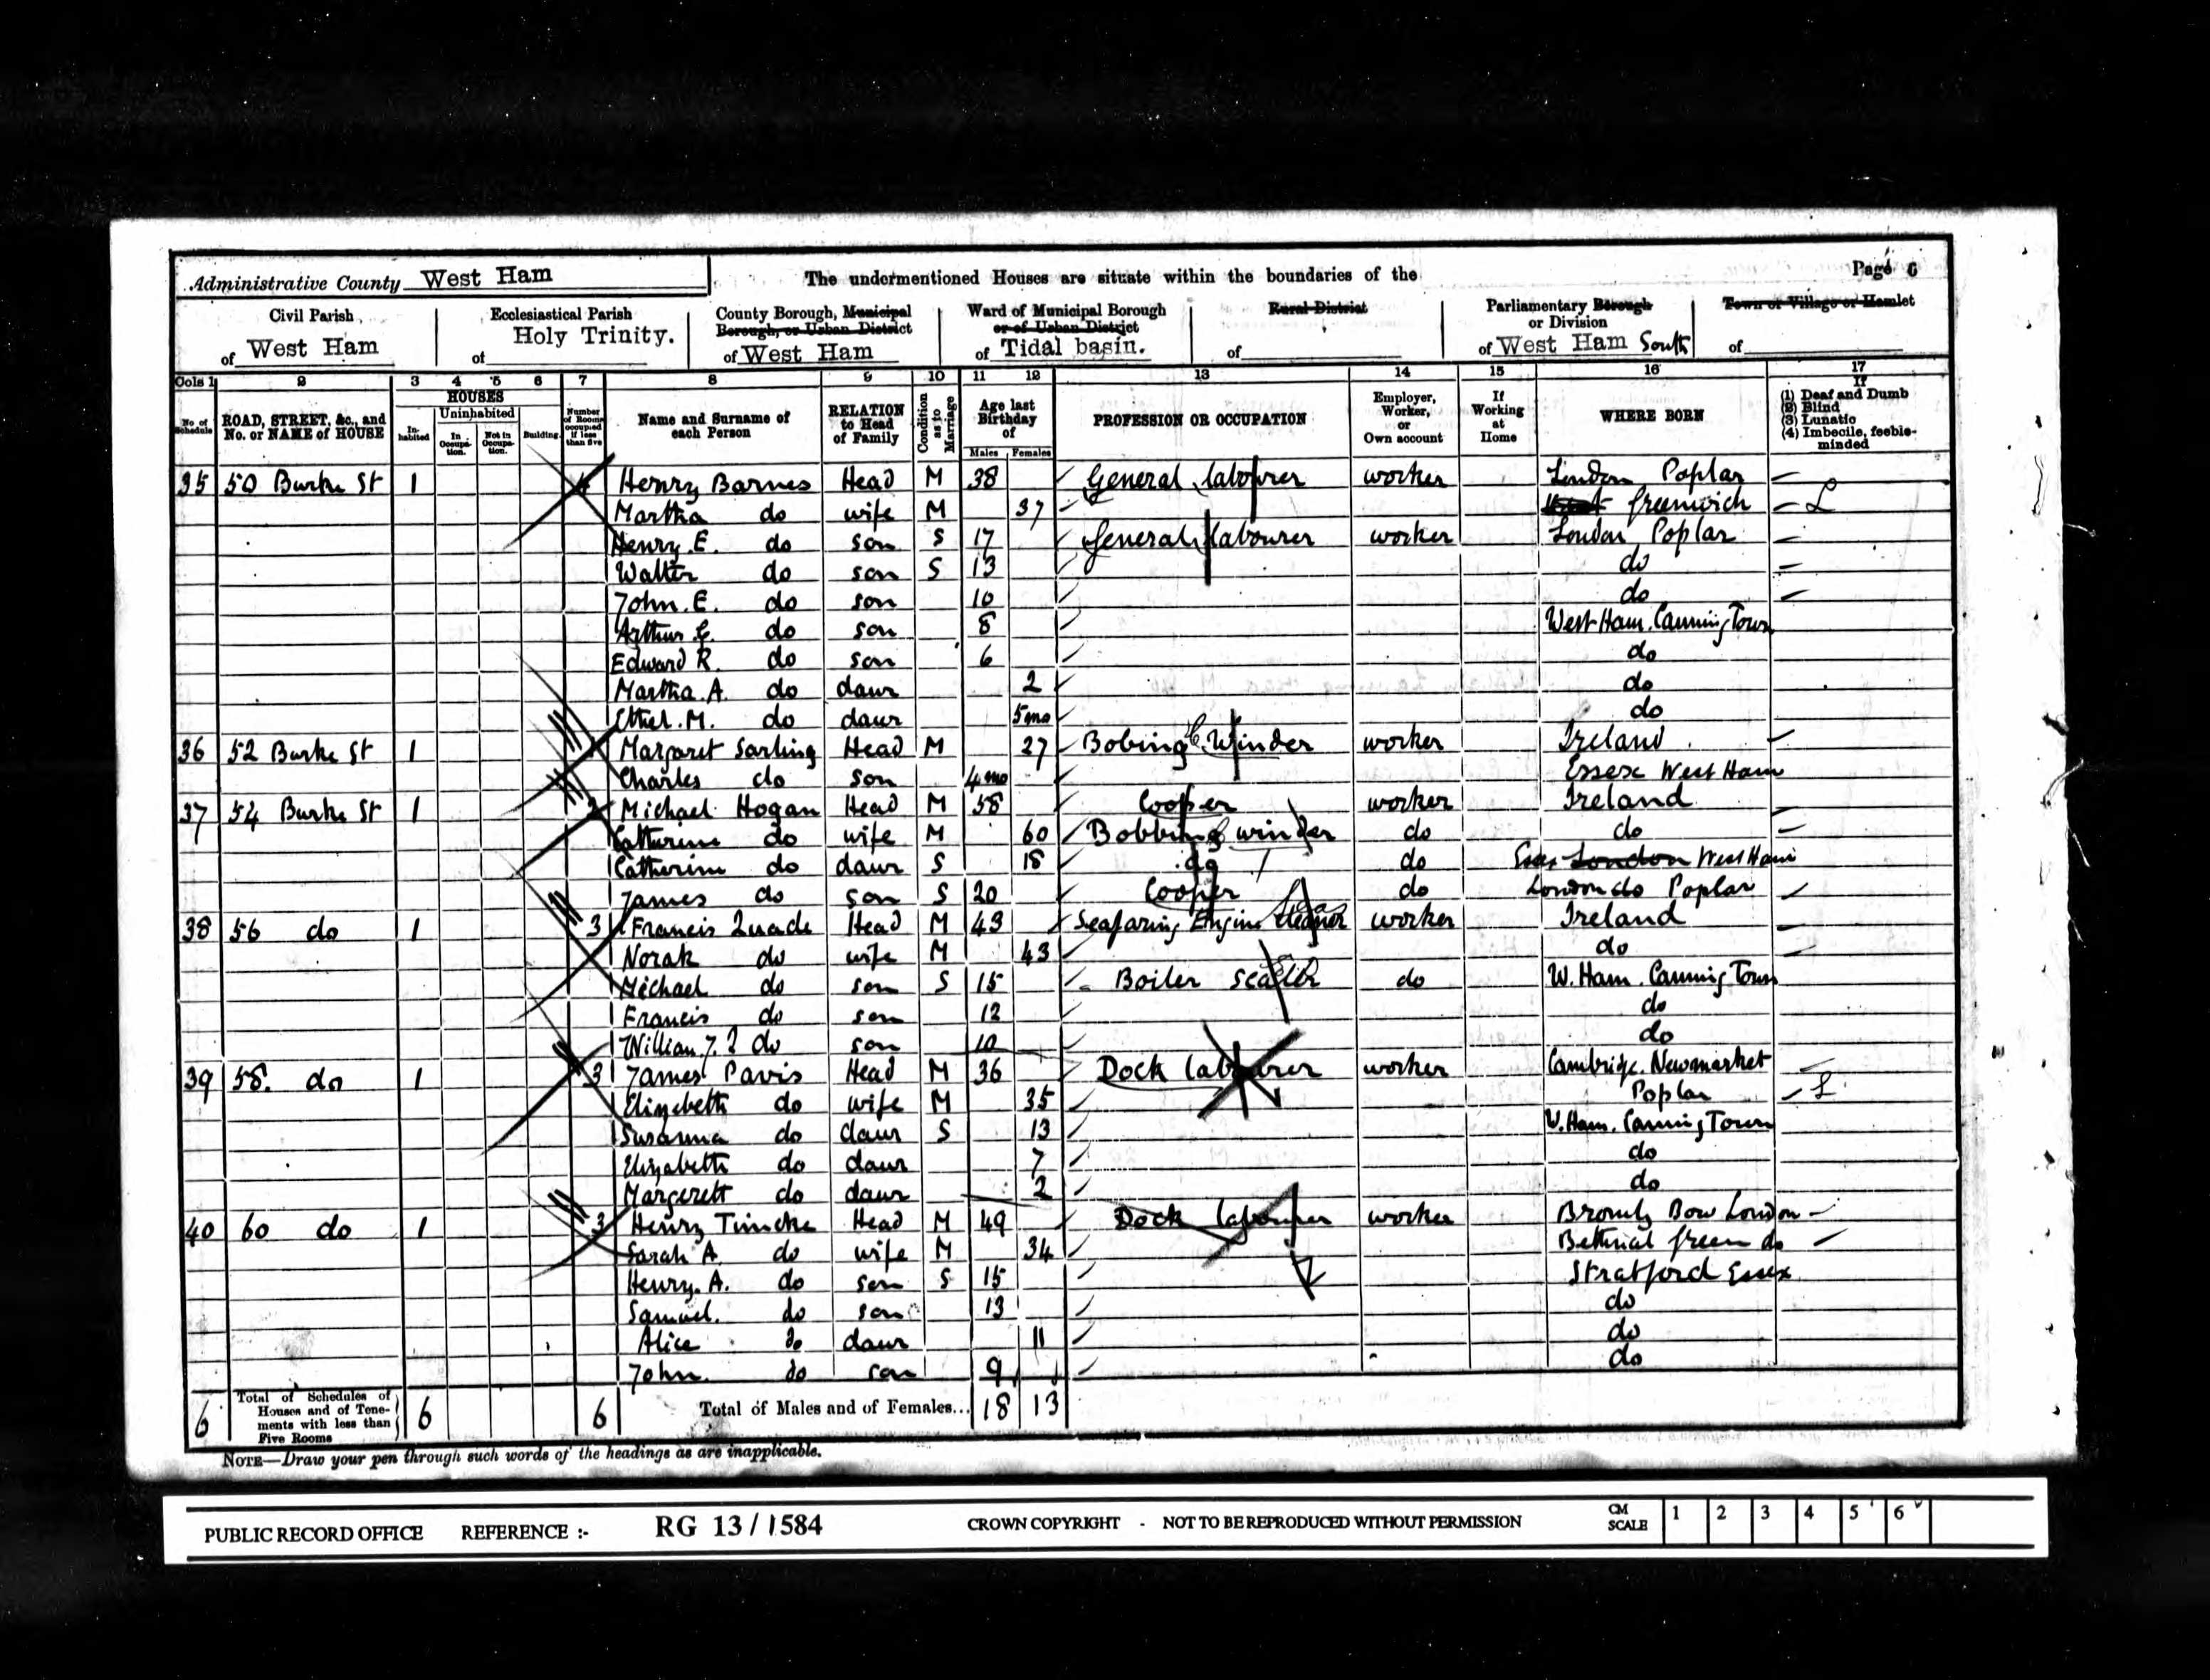 Administrative County West Ham The undermentioned Houses are situate within the boundaries of the Page 6
Civil Parish Ecclesiastical Parish County Borough, Municipal Ward of Municipal Borough Rural District Parliamentary Borough Town or Village or Hamlet
Borough, or Urban District or of Urban District or Division
of West Ham of Holy Trinity. of West Ham of Tidal basin. of of West Ham South of
Cols 1 2 3 4 5 6 7 8 9 10 11 12 13 14 15 16 17
No of Schedule ROAD, STREET, &c., and No. or NAME of HOUSE HOUSES In-habited Uninhabited In Occupa-tion. Not in Occupa-tion. Building. Number of Rooms occupied if less than five Name and Surname of each Person RELATION to Head of Family Condition as to Marriage Age last Birthday of Males Females PROFESSION OR OCCUPATION Employer, Worker, or Own account If Working at Home WHERE BORN If (1) Deaf and Dumb (2) Blind (3) Lunatic (4) Imbecile, feeble-minded
35 50 Burke St 1 4 Henry Barnes Head M 38 General labourer worker London Poplar
Martha do wife M 37 Greenwich L
Henry E. do son S 17 General labourer worker London Poplar
Walter do son S 13 do
John. E. do son 10 do
Arthur G. do son 8 West Ham. Canning Town
Edward R. do son 6 do
Martha A. do daur 2 do
Ethel. M. do daur 5 mo do
36 52 Burke St 1 Margaret Sarling Head M 27 Bobing Winder worker Ireland
Charles do son 4 mo Essex West Ham
37 54 Burke St 1 Michael Hogan Head M 58 Cooper worker Ireland
Catherine do wife M 60 Bobbing winder do do
Catherine do daur S 18 do do Essex London West Ham
James do son S 20 Cooper do London do Poplar
38 56 do 1 3 Francis Quade Head M 43 Seafaring Engine Cleaner worker Ireland
Norah do wife M 43 do
Michael do son S 15 Boiler scaler do W. Ham. Canning Town
Francis do son 12 do
William J. do son 10 do
39 58. do 1 3 James Pavis Head M 36 Dock labourer worker Cambrige. Newmarket
Elizabeth do wife M 35 Poplar L
Susanna do daur S 13 W. Ham. Canning Town
Elizabeth do daur 7 do
Margerett do daur 2 do
40 60 do 1 3 Henry Timcke Head M 49 Dock labourer worker Bromly Bow London
Sarah A. do wife M 34 Bethnal Green do
Henry. A. do son S 15 Stratford Essex
Samuel. do son 13 do
Alice do daur 11 do
John. do son 9 do
6 Total of Schedules of Houses and of Tene-ments with less than Five Rooms 6 6 Total of Males and of Females... 18 13
NOTE—Draw your pen through such words of the headings as are inapplicable.
PUBLIC RECORD OFFICE REFERENCE :- RG 13/1584 CROWN COPYRIGHT - NOT TO BE REPRODUCED WITHOUT PERMISSION CM SCALE 1 2 3 4 5 6